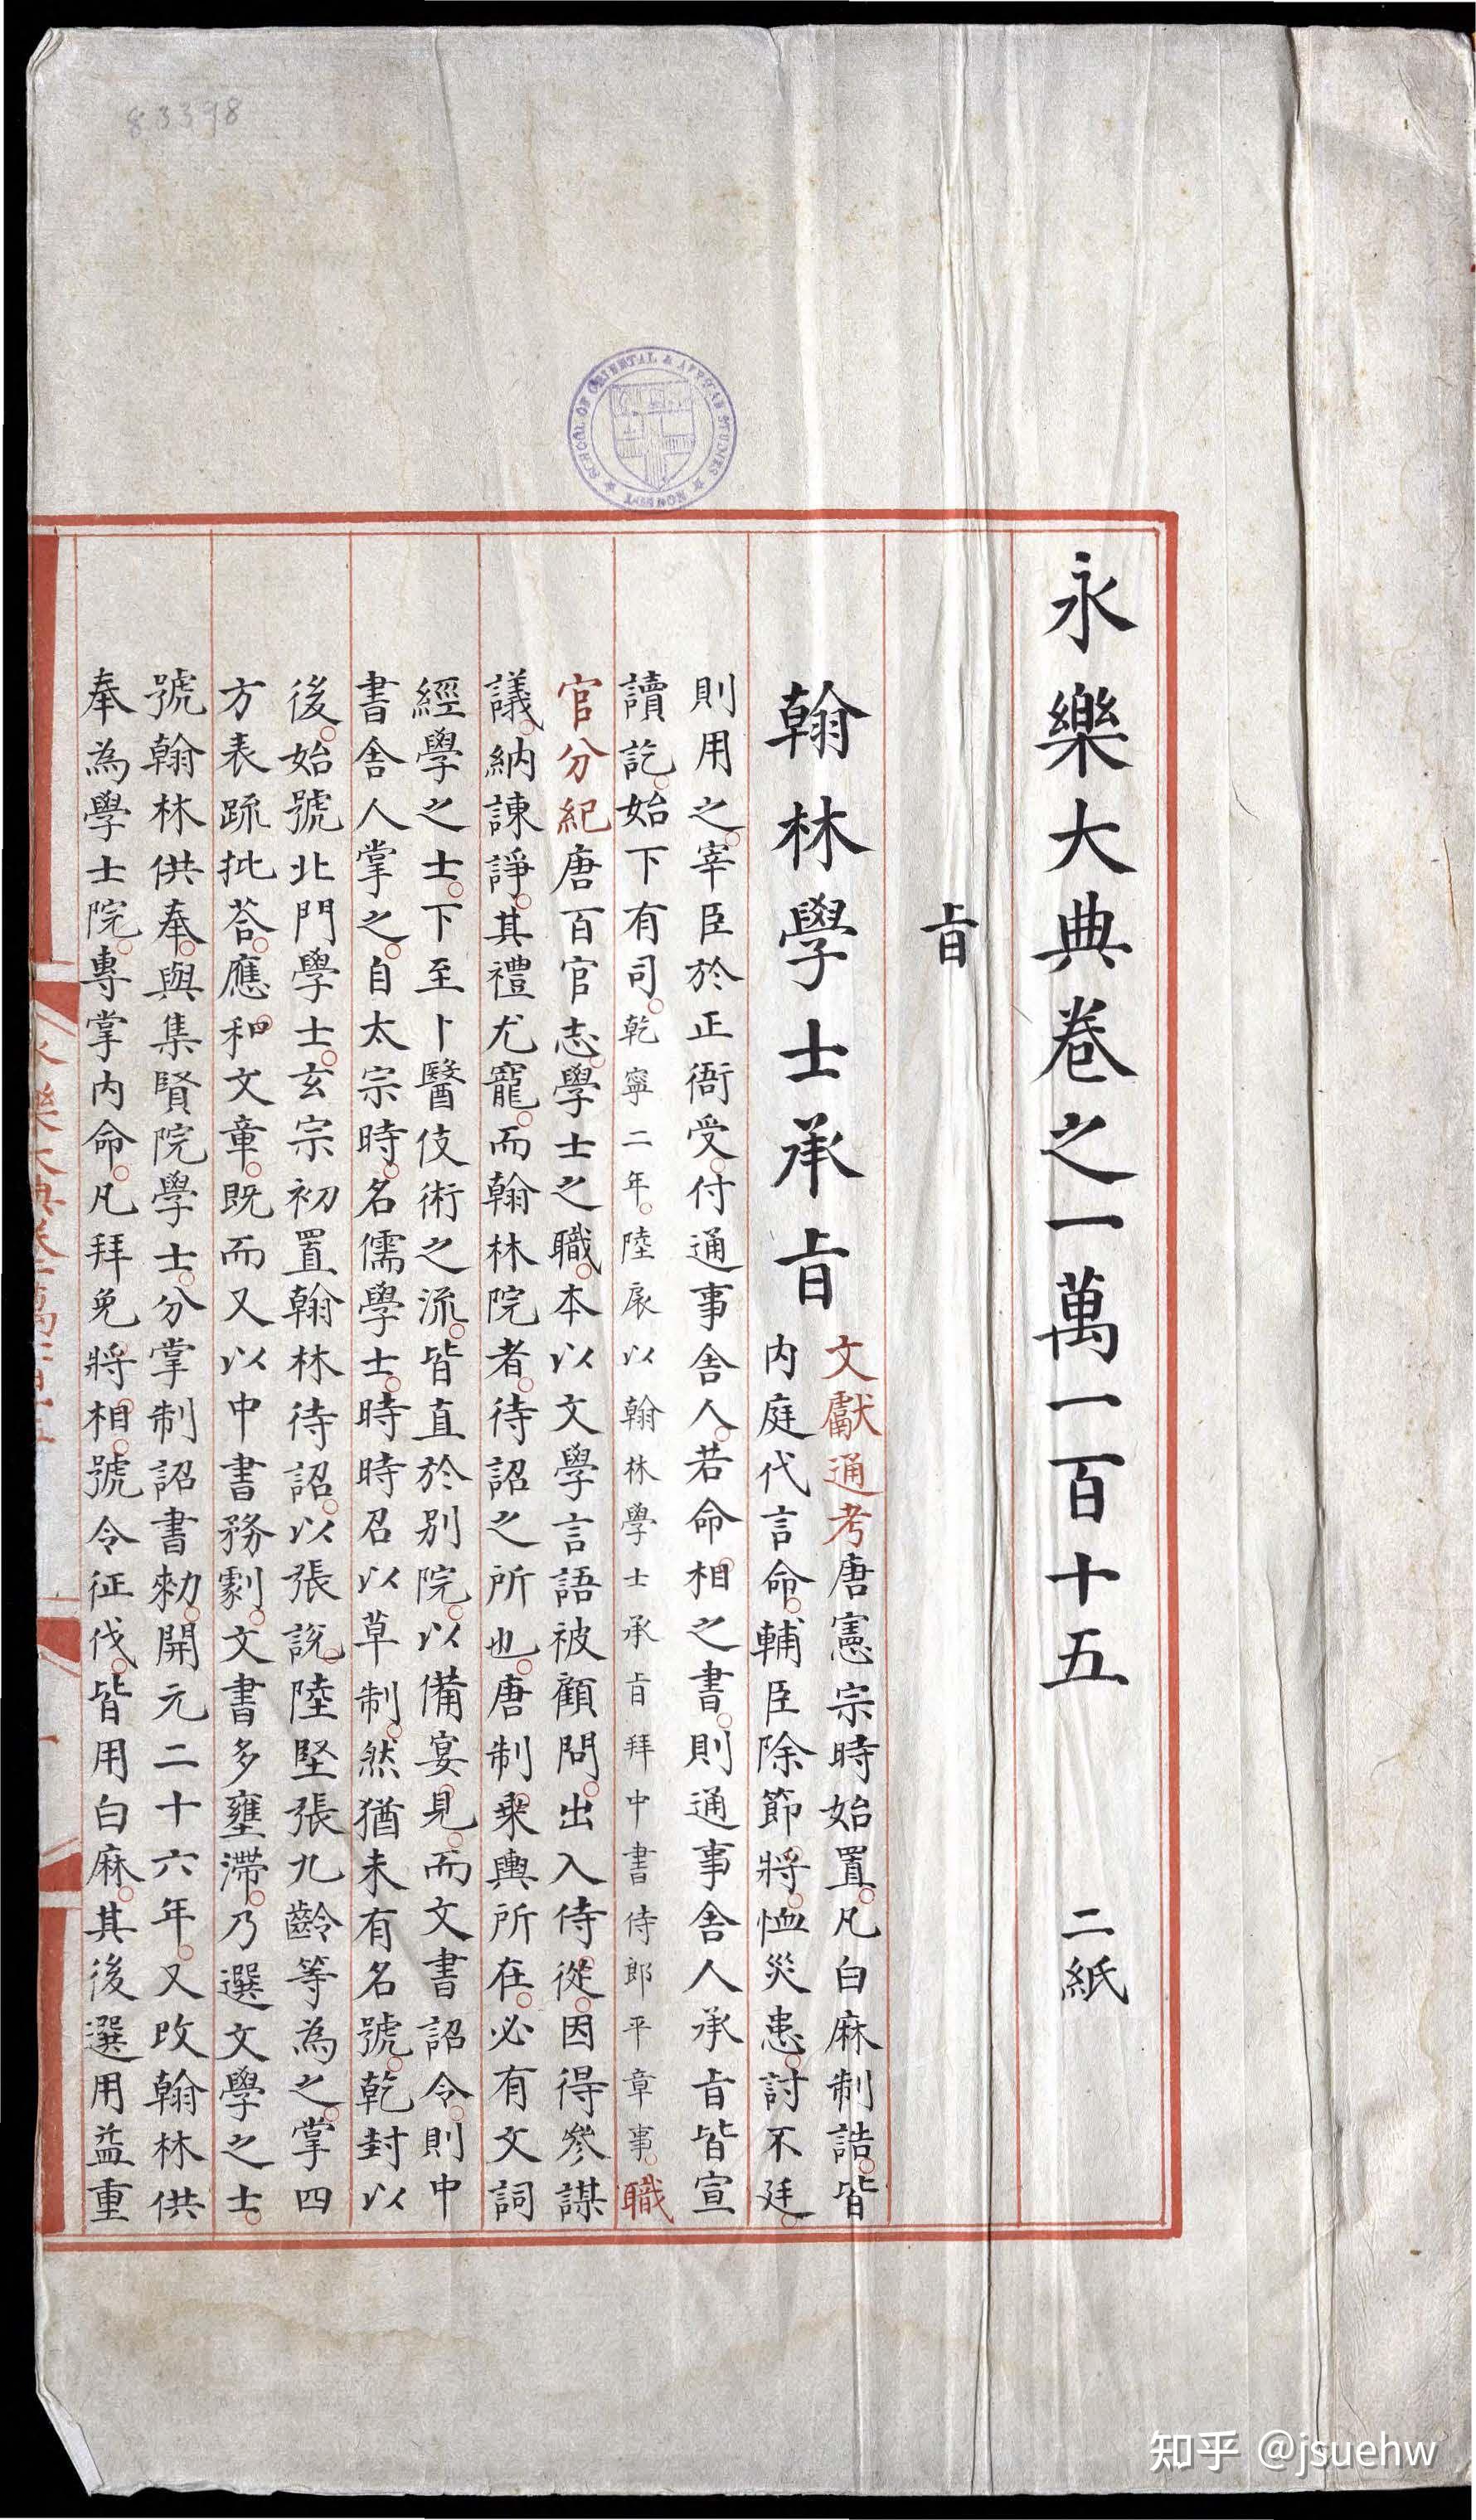 83398
SCHOOL OF ORIENTAL & AFRICAN STUDIES LONDON
永樂大典卷之一萬一百十五 二紙
㫖
翰林學士承㫖
文獻通考唐憲宗時始置凡白麻制誥皆
内庭代言命輔臣除節將恤災患討不廷
則用之宰臣於正衙受付通事舍人若命相之書則通事舍人承㫖皆宣
讀訖始下有司乾寧二年陸扆以翰林學士承㫖拜中書侍郎平章事職
官分紀唐百官志學士之職本以文學言語被顧問出入侍從因得參謀
議納諫諍其禮尤寵而翰林院者待詔之所也唐制乘輿所在必有文詞
經學之士下至卜醫伎術之流皆直於别院以備宴見而文書詔令則中
書舍人掌之自太宗時名儒學士時時召以草制然猶未有名號乾封以
後始號北門學士玄宗初置翰林待詔以張說陸堅張九齡等為之掌四
方表疏批荅應和文章既而又以中書務劇文書多壅滯乃選文學之士
號翰林供奉與集賢院學士分掌制詔書勑開元二十六年又改翰林供
奉為學士院專掌内命凡拜免將相號令征伐皆用白麻其後選用益重
永樂大典卷
知乎 @jsuehw